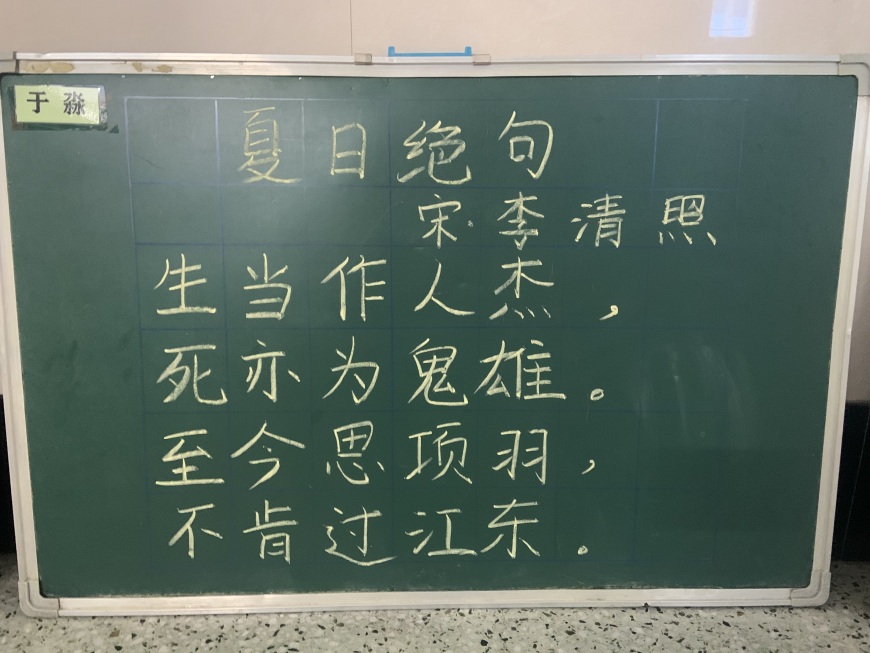 于淼
夏日绝句
宋·李清照
生当作人杰，
死亦为鬼雄。
至今思项羽，
不肯过江东。